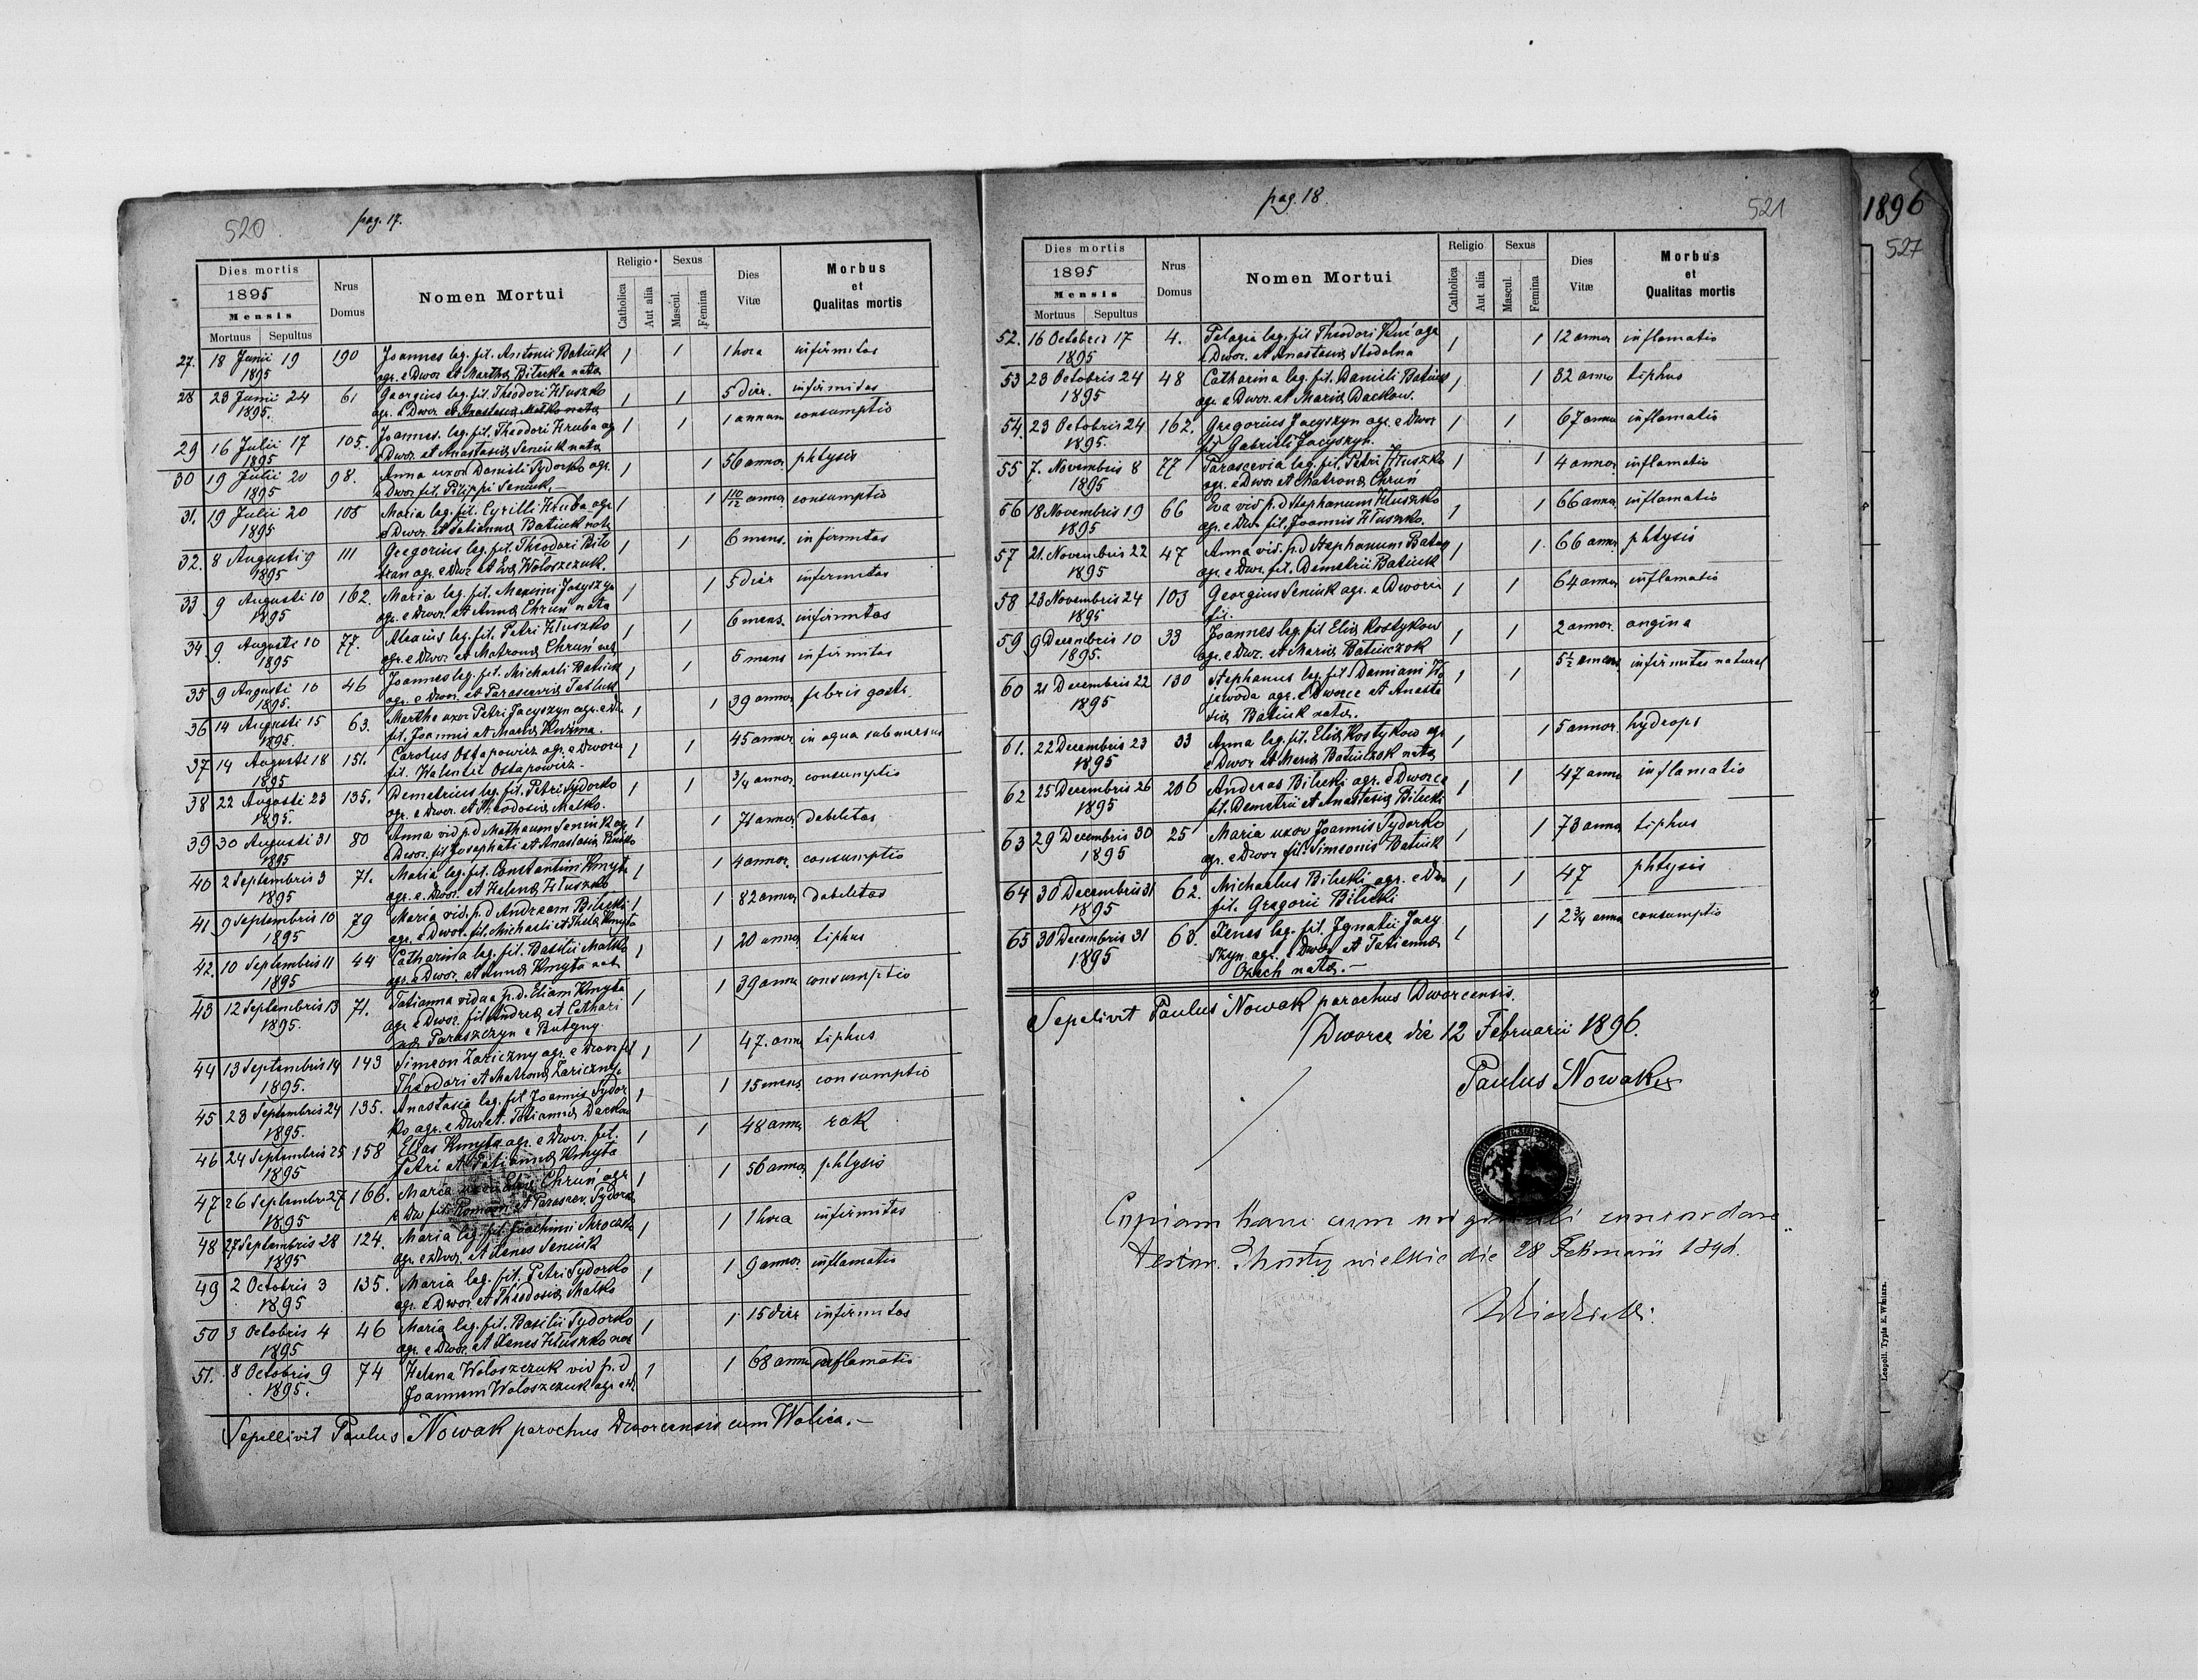 520
pag. 17.
Dies mortis
1895
Mensis
Mortuus Sepultus
Nrus
Domus
Nomen Mortui
Religio
Catholica
Aut alia
Sexus
Mascul.
Femina
Dies
Vitæ
Morbus
et
Qualitas mortis
27. 18 Junii 19 190 Joannes leg. fil. Antonii Batiuk 1 1 1 hora infirmitas
1895 agr. e Dwor. et Martha Bilecka nata
28 23 Junii 24 61 Georgius leg. fil. Theodori Hluszko 1 1 5 dier. infirmitas
1895. agr. e Dwor et Anastasia Matko nata
29 16 Julii 17 105. Joannes. leg. fil. Theodori Hruba ag 1 1 1 annum consumptio
1895 e Dwor. et Anastasia Seniuk nata
30 19 Julii 20 98. Anna uxor Danieli Sydorko agr. 1 1 56 annor phtysis
1895 e Dwor fil. Philippi Seniuk.—
31. 19 Julii 20 108 Maria leg. fil. Cyrilli Hruba agr 1 1 1 10/12 annor consumptio
1895 e Dwor. et Tatianna Batiuk nata
32. 8 Augusti 9 111 Gregorius leg. fil. Theodori Bito 1 1 6 mens. infirmitas
1895 bran agr. e Dwor et Eva Woloszczuk.
33 9 Augusti 10 162. Maria leg. fil. Maximi Jacyszyn 1 1 5 dier infirmitas
1895 agr. e Dwor. et Anna Chruń nata
34 9 Augusti 10 77. Alexius leg. fil. Petri Hluszko 1 1 6 mens. infirmitas
1895 agr. e Dwor et Matrona Chruń nat
35 9 Augusti 10 46 Joannes leg. fil. Michaeli Batiuk 1 1 5 mens infirmitas
1895. agr. e Dwor. et Parascevia
36 14 Augusti 15 63. Martha uxor Petri Jacyszyn agr. e Dw 1 1 39 annor febris gastr.
1895. fil. Joannis et Maria Kuźma.
37 14 Augusti 18 151. Carolus Ostapowicz agr. e Dworce 1 1 45 annor in aqua submersus
1895 fil. Walentii Ostapowicz.
38 22 Augusti 23 135. Demetrius leg. fil. Petri Sydorko 1 1 3/4 annor consumptio
1895. agr. e Dwor. et Theodosia Matko.
39 30 Augusti 31 80 Anna vid p.d Mathaum Seniuk ag 1 1 71 annor debeletas
1895 e Dwor. fil Josephati et Anastasia
40 2 Septembris 3 71. Maria leg. fil. Constantini Kmyta 1 1 4 annor. consumptio
1895 agr. e. Dwor. et Helena Hluszko
41 9 Septembris 10 79 Maria vid. p.d Andream Bilecki 1 1 82 annor debeletas
1895 agr. e Dwor. fil. Michaeli et Thecla Kmyta
42. 10 Septembris 11 44 Catharina leg. fil. Basilii Matko 1 1 20 annor tiphus
1895 agr. e Dwor. et Anna Kmyta nat
43 12 Septembris 13 71. Tatianna vidua p.d. Eliam Kmyta 1 1 39 anna consumptio
1895. agr. e Dwor. fil Andrea et Cathari
na Paraszczyn e Butyny.
44 13 Septembris 14 143 Simeon Zariczny agr. e Dwor fil 1 1 47. ann tiphus
1895. Theodori et Matrona Zariczny.
45 23 Septembris 24 135. Anastasia leg. fil Joannis Sydor 1 1 15 mens consumptio
1895. ko agr. e Dwor et. Tatianna Dackow
46 24 Septembris 25 158 Elias Kmyta agr. e Dwor. fil. 1 1 48 annor rak
1895 Petri et Tatianna Kmyta
47 26 Septembris 27 166. Maria uxor Chruń agr 1 1 56 annor phtysis
1895 e Dw fil. Romani et Parascev. Sydorko
48 27 Septembris 28 124. Maria leg. fil. Joachimi 1 1 1 hora infirmitas
1895 agr. e Dwor. et Xenes Seniuk
49 2 Octobris 3 135. Maria leg. fil. Petri Sydorko 1 1 9 annor. inflamatio
1895 agr. e Dwor. et Theodosia Matko
50 3 Octobris 4 46 Maria leg. fil. Basilii Sydorko 1 1 15 dier infirmitas
1895 agr. e Dwor. et Xenes Hluszko nat
51. 8 Octobris 9 74 Helena Woloszczuk vid p.d 1 1 68 anna inflamatio
1895. Joannem Woloszczuk agr e D
Sepellivit Paulus Nowak parochus Dworcensis cum Wolica.—
pag. 18.
521
Dies mortis
1895
Mensis
Mortuus Sepultus
Nrus
Domus
Nomen Mortui
Religio
Catholica
Aut alia
Sexus
Mascul.
Femina
Dies
Vitæ
Morbus
et
Qualitas mortis
52. 16 Octobris 17 4. Pelagia leg. fil Theodori Kuć agr 1 1 12 annor inflamatio
1895 e Dwor. et Anastasia Stodolna
53 23 Octobris 24 48 Catharina leg. fil. Danieli Batiuk 1 1 32 anna tiphus
1895 agr. e Dwor. et Maria Dackow.
54. 23 Octobris 24 162. Gregorius Jacyszyn agr. e Dwor 1 1 67 anna inflamatio
1895. fil Gabrieli Jacyszyn.
55 7. Novembris 8 77 Parascevia leg. fil. Petri Hluszko 1 1 4 annor inflamatio
1895 agr. e Dwor et Matrona Chruń
56 18 Novembris 19 66 Eva vid p.d Stephanum Hluszko 1 1 66 anna inflamatio
1895 agr. e Dwor fil. Joannis Hluszko.
57 21. Novembris 22 47 Anna vid. p.d Stephanum 1 1 66 annor phtysis
1895 agr. e Dwor. fil. Demetrii Batiuk
58 23 Novembris 24 103 Georgius Seniuk agr. e Dworce 1 1 64 annor inflamatio
1895 fil.
59 9 Decembris 10 33 Joannes leg. fil Elia Kostykow 1 1 2 annor. angina
1895. agr. e Dwor. et Maria Batiuczok
60 21 Decembris 22 130 Stephanus leg. fil. Damiani Wo 1 1 5 1/2 infirmitas natural
1895 jewoda agr. e Dworce et Anasta
sia Batiuk nata.
61. 22 Decembris 23 33 Anna leg. fil. Elia Kostykow agr 1 1 5 annor. hydrops
1895 e Dwor et Maria Batiuczok nata
62 25 Decembris 26 206 Andreas Bilecki agr. e Dworce 1 1 47 anna inflamatio
1895 fil. Demetrii et Anastasia Bilecki
63 29 Decembris 30 25 Maria uxor Joannis Sydorko 1 1 73 anna tiphus
1895 agr. e Dwor fil. Simeonis Batiuk
64 30 Decembris 31 62. Michaelus Bilecki agr. e Dwo 1 1 47 phtysis
1895 fil. Gregorii Bilecki
65 30 Decembris 31 63. Xenes leg. fil. Ignatii Jacy 1 1 2 3/4 anna consumptio
1895 szyn agr. e Dwor et Tatianna
nata.—
Sepelivit Paulus Nowak parochus Dworcensis.
Dworce die 12 Februarii 1896.
Paulus Nowak
Copiam hanc cum originali concordare
testor. Mosty wielkie die 28 Februarii
1896
527
Leopoli. Typis E. Winiarz.